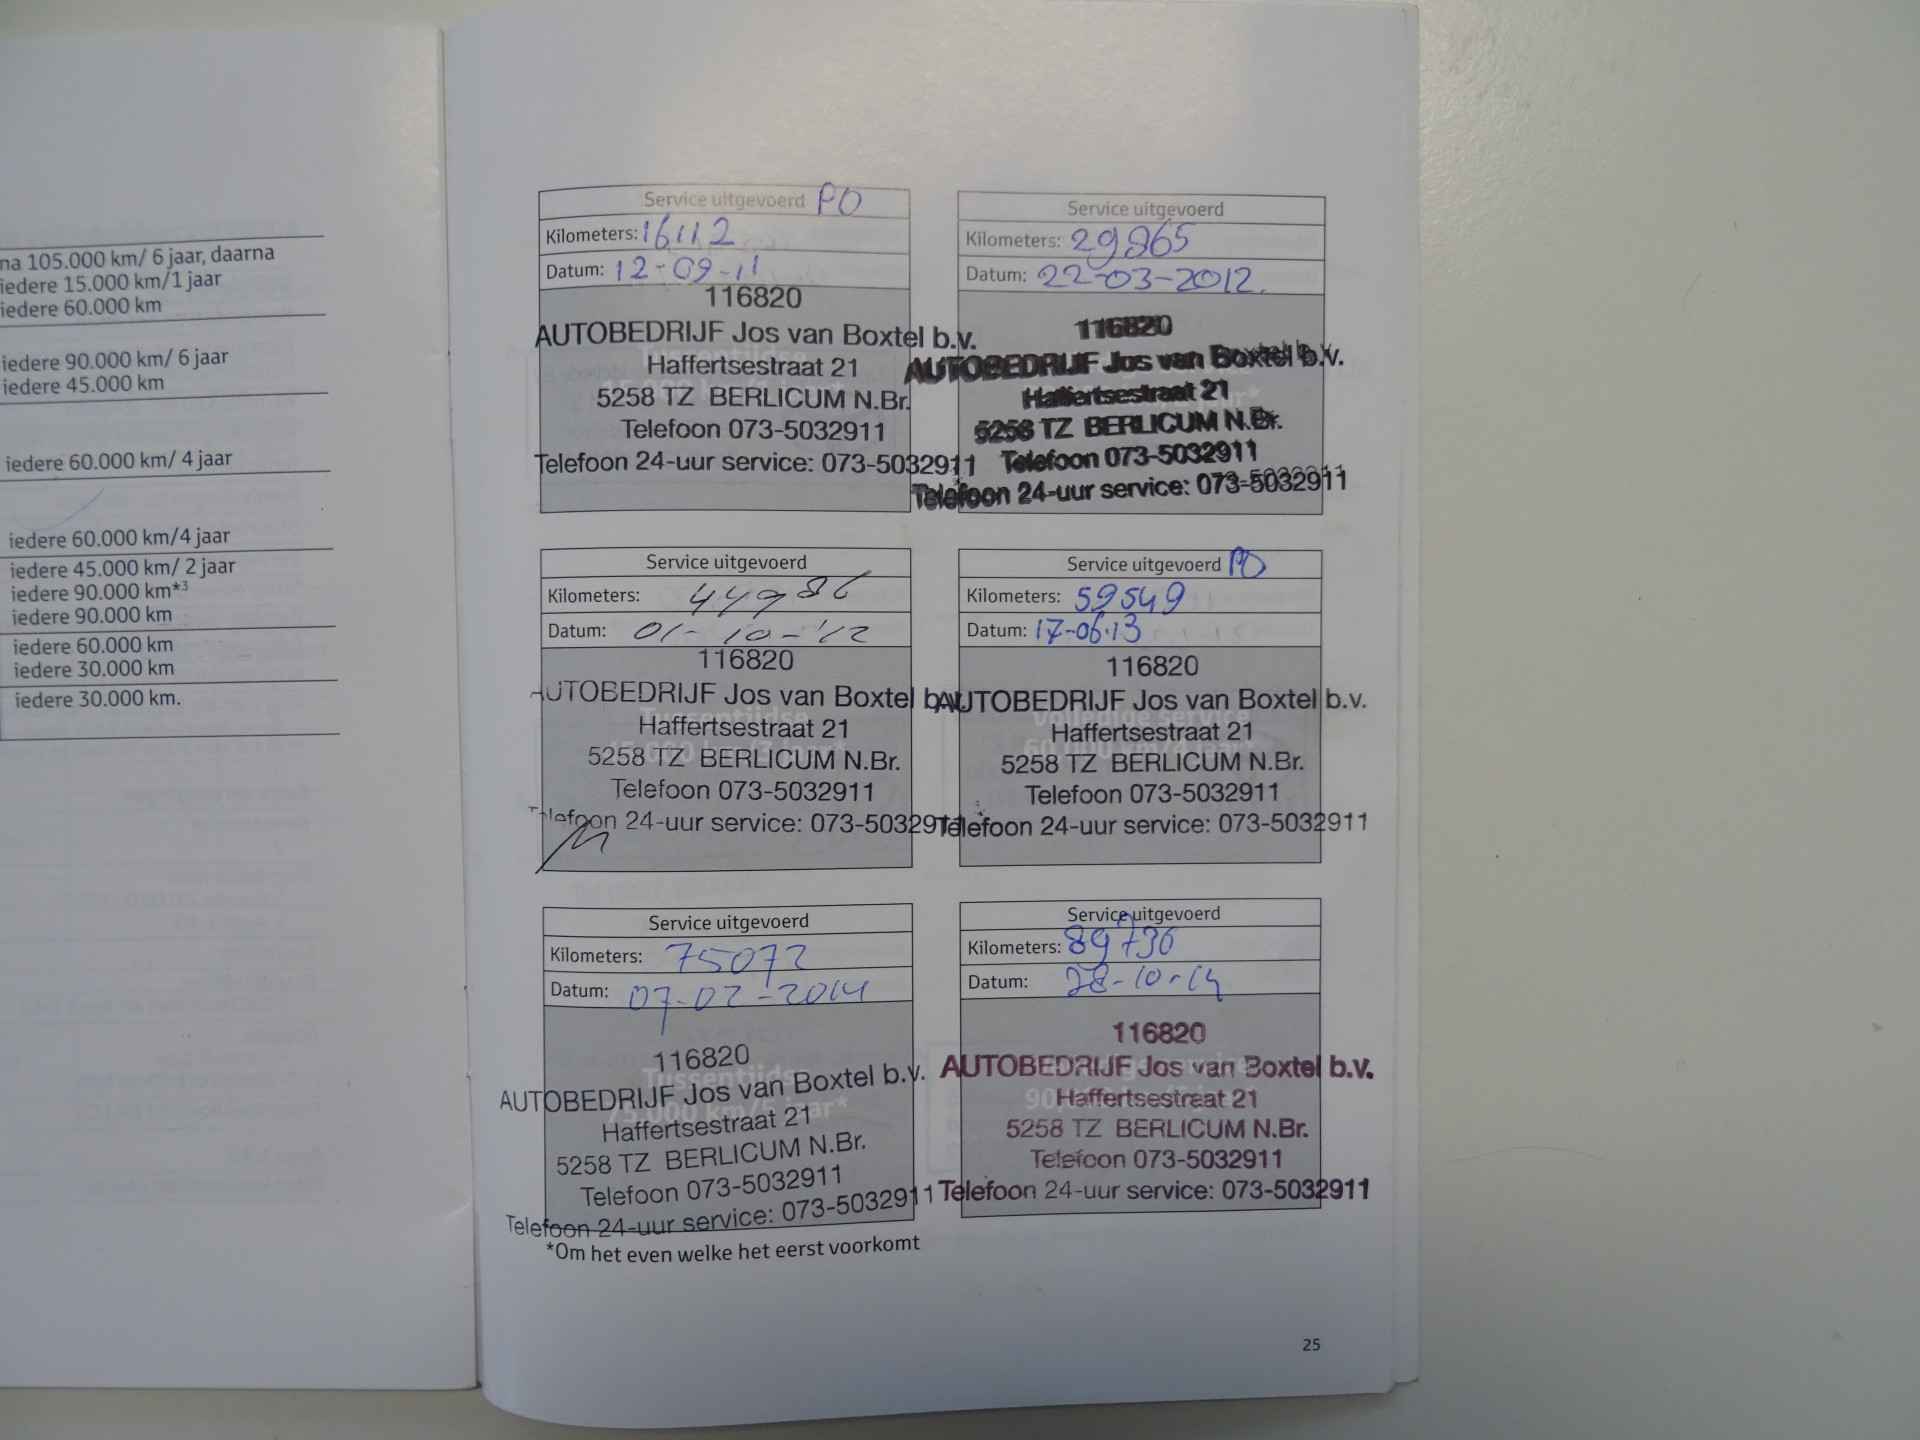 na 105.000 km/ 6 jaar, daarna
iedere 15.000 km/1 jaar
iedere 60.000 km
iedere 90.000 km/ 6 jaar
iedere 45.000 km
iedere 60.000 km/ 4 jaar
iedere 60.000 km/4 jaar
iedere 45.000 km/ 2 jaar
iedere 90.000 km*3
iedere 90.000 km
iedere 60.000 km
iedere 30.000 km
iedere 30.000 km.
Service uitgevoerd PO
Kilometers: 16112
Datum: 12-09-11
116820
AUTOBEDRIJF Jos van Boxtel b.v.
Haffertsestraat 21
5258 TZ BERLICUM N.Br.
Telefoon 073-5032911
Telefoon 24-uur service: 073-5032911
Service uitgevoerd
Kilometers: 29865
Datum: 22-03-2012.
116820
AUTOBEDRIJF Jos van Boxtel b.v.
Haffertsestraat 21
5258 TZ BERLICUM N.Br.
Telefoon 073-5032911
Telefoon 24-uur service: 073-5032911
Service uitgevoerd
Kilometers: 44986
Datum: 01-10-'12
116820
AUTOBEDRIJF Jos van Boxtel b.v.
Haffertsestraat 21
5258 TZ BERLICUM N.Br.
Telefoon 073-5032911
Telefoon 24-uur service: 073-5032911
Service uitgevoerd PO
Kilometers: 59549
Datum: 17-06-13
116820
AUTOBEDRIJF Jos van Boxtel b.v.
Volledige service
Haffertsestraat 21
60.000 km/4 jaar*
5258 TZ BERLICUM N.Br.
Telefoon 073-5032911
Telefoon 24-uur service: 073-5032911
Service uitgevoerd
Kilometers: 75072
Datum: 07-02-2014
116820
Tussentijdse
AUTOBEDRIJF Jos van Boxtel b.v.
75.000 km/5 jaar*
Haffertsestraat 21
5258 TZ BERLICUM N.Br.
Telefoon 073-5032911
Telefoon 24-uur service: 073-5032911
Service uitgevoerd
Kilometers: 89736
Datum: 28-10-14
116820
AUTOBEDRIJF Jos van Boxtel b.v.
Haffertsestraat 21
5258 TZ BERLICUM N.Br.
Telefoon 073-5032911
Telefoon 24-uur service: 073-5032911
*Om het even welke het eerst voorkomt
25